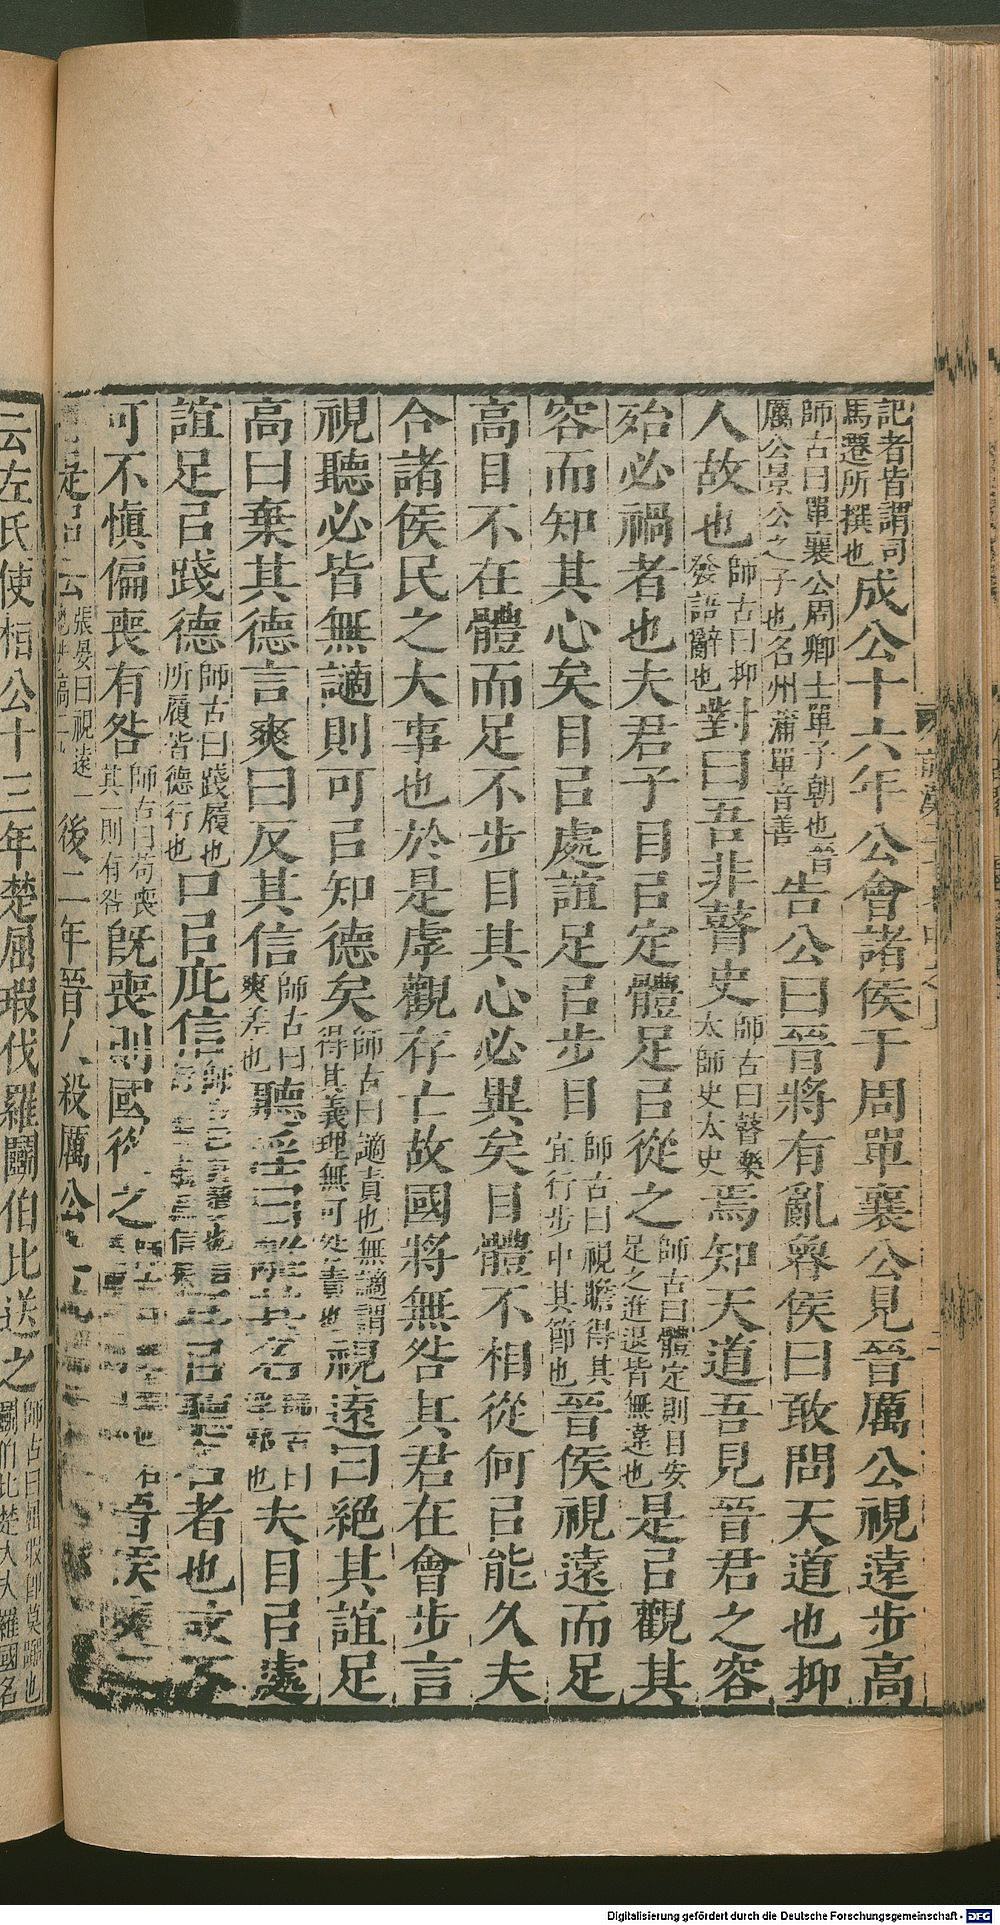 記者皆謂司
馬遷所撰也
成公十六年公會諸侯于周單襄公見晉厲公視遠步高
師古曰單襄公周卿士單子朝也晉
厲公景公之子也名州蒲單音善
告公曰晉將有亂魯侯曰敢問天道也抑
人故也
師古曰抑
發語辭也
對曰吾非瞽史
師古曰瞽樂
太師史太史
焉知天道吾見晉君之容
殆必禍者也夫君子目㠯定體足㠯從之
師古曰體定則目安
足之進退皆無違也
是㠯觀其
容而知其心矣目㠯處誼足㠯步目
師古曰視瞻得其
宜行步中其節也
晉侯視遠而足
高目不在體而足不步目其心必異矣目體不相從何㠯能久夫
合諸侯民之大事也於是虖觀存亡故國將無咎其君在會步言
視聽必皆無謫則可㠯知德矣
師古曰謫責也無謫謂
得其義理無可咎責也
視遠曰絕其誼足
高曰棄其德言爽曰反其信
師古曰
爽差也
聽淫曰離其名
夫目㠯處
誼足㠯踐德
師古曰踐履也
所履皆德行也
口㠯庇信
耳㠯聽名者也
不可不慎偏喪有咎
師古曰苟喪
其一則有咎
既喪則國從之
晉侯爽二
張晏曰視遠一
後二年晉人殺厲公
云左氏傳桓公十三年楚屈瑕伐羅鬬伯比送之
師古曰屈瑕即莫囂也
鬬伯比楚大夫羅國名
Digitalisierung gefördert durch die Deutsche Forschungsgemeinschaft - DFG